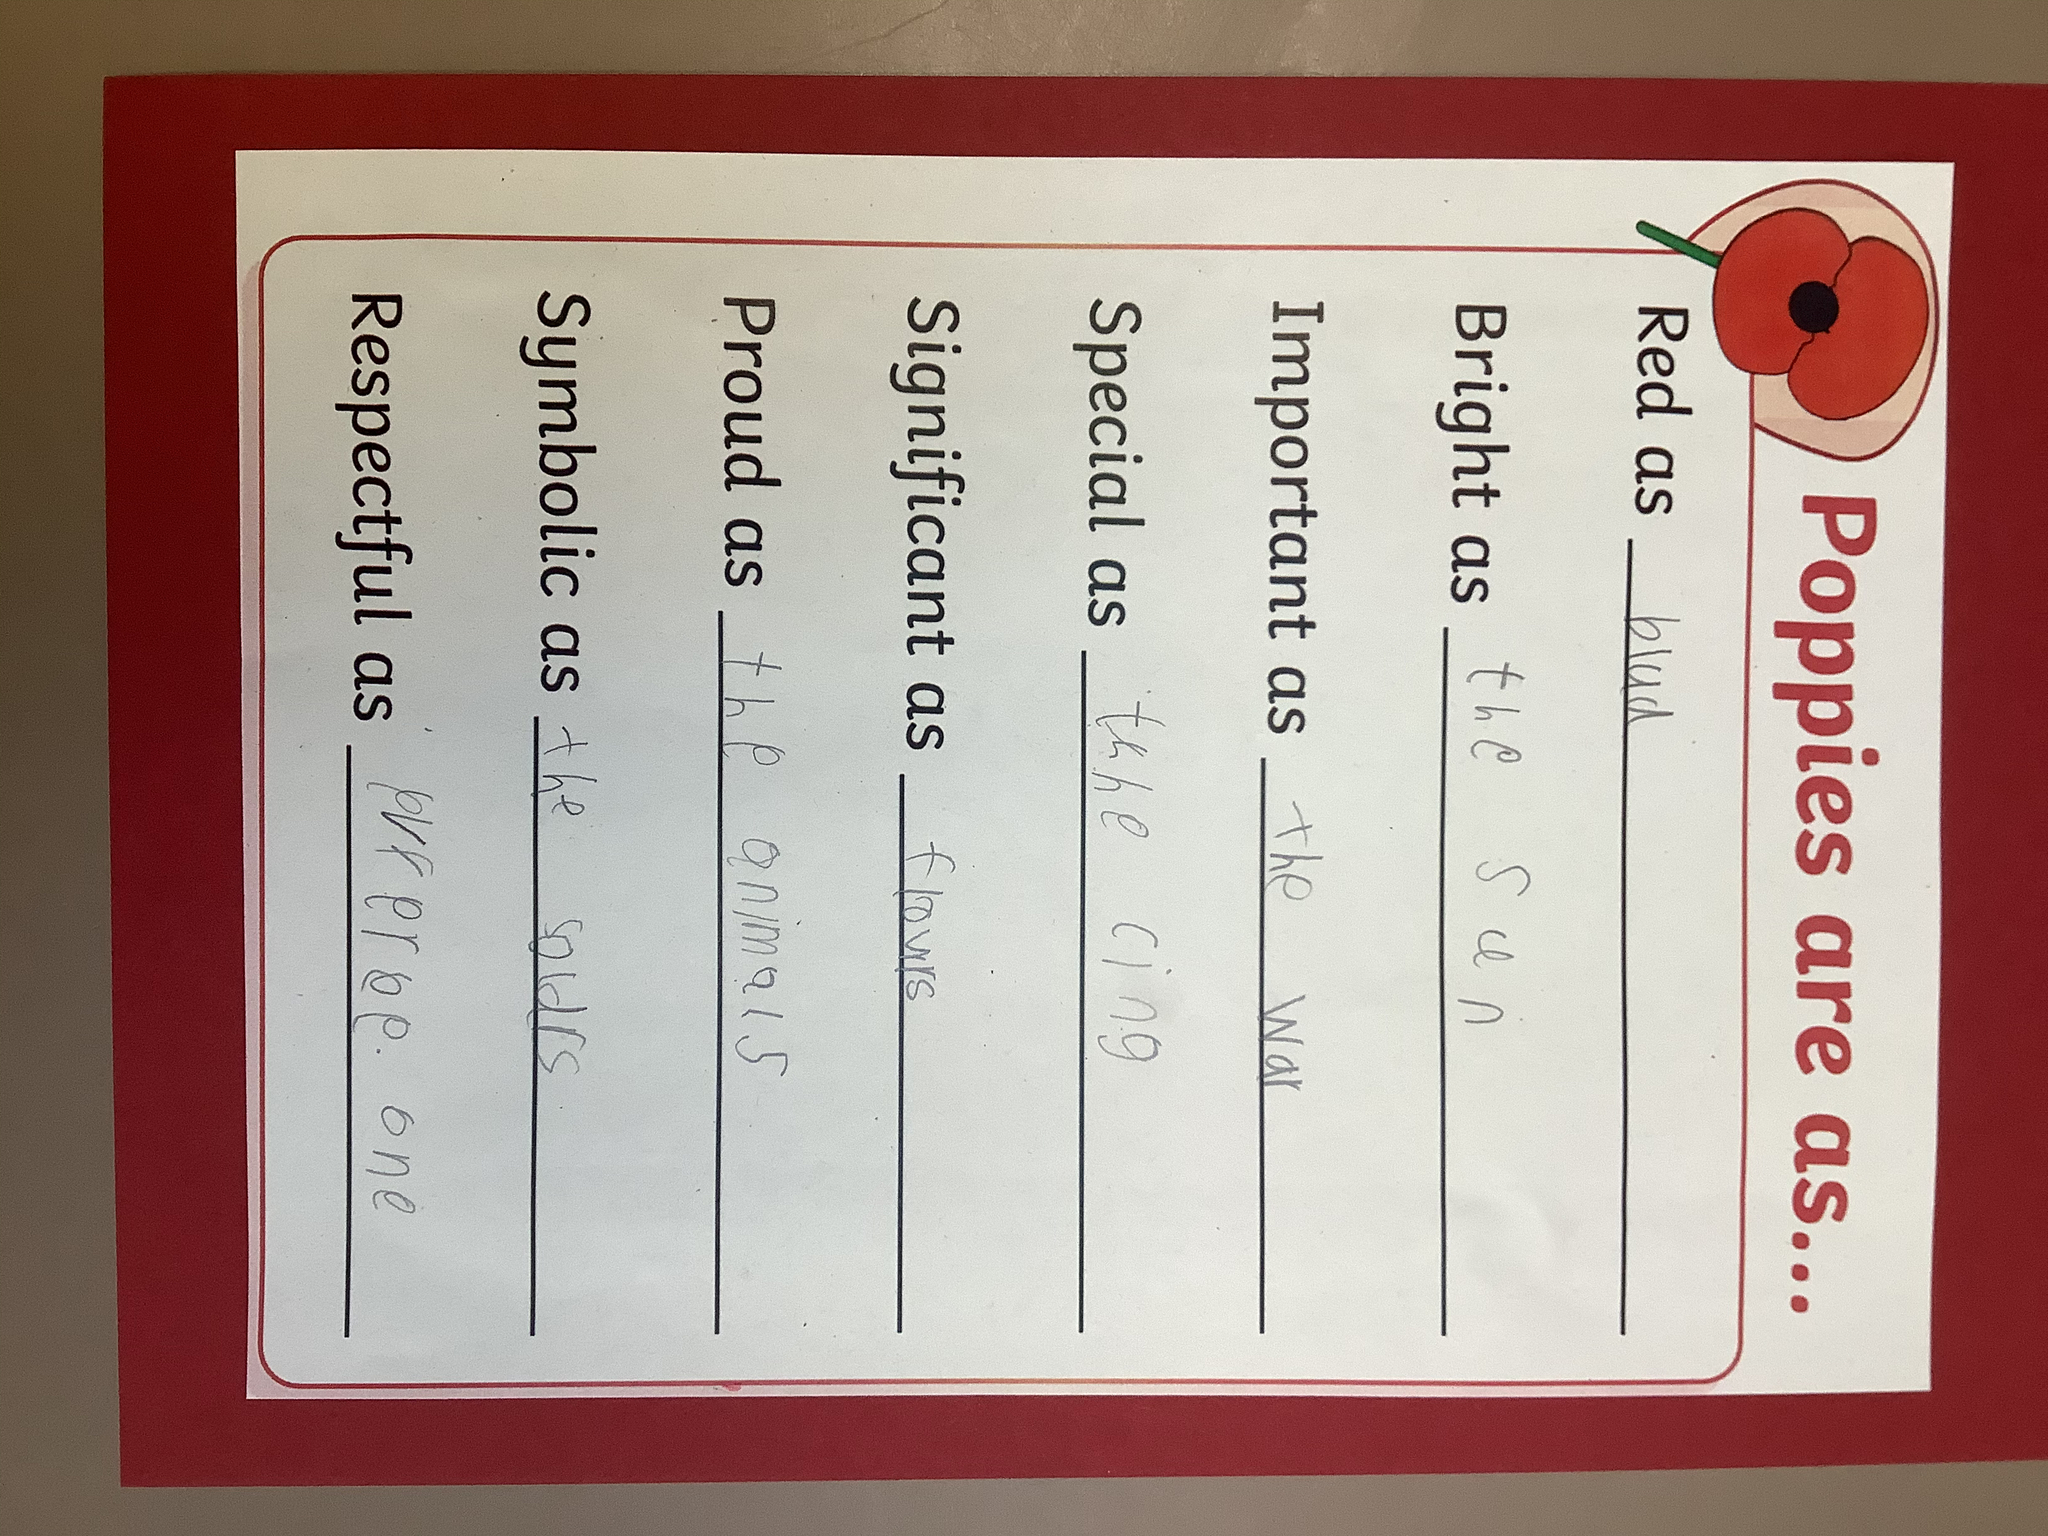 Poppies are as...
Red as blud
Bright as the sun
Important as the war
Special as the cing
Significant as flowrs
Proud as the animals
Symbolic as the soldrs
Respectful as one